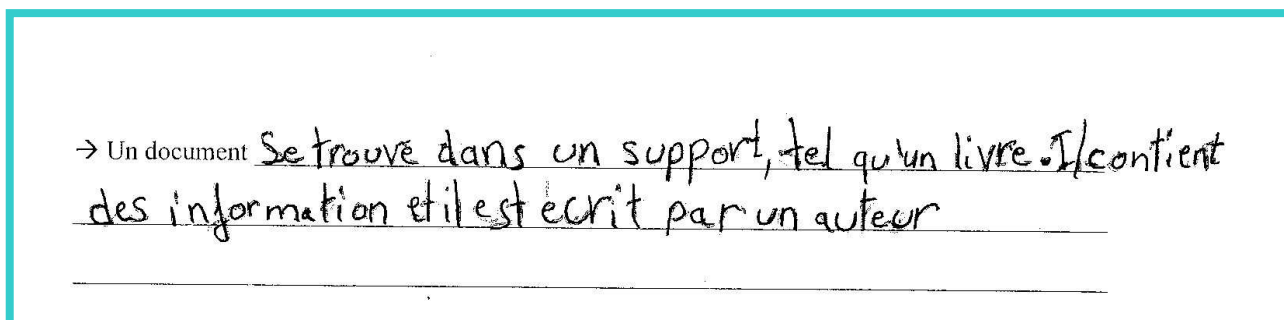 → Un document Se trouve dans un support, tel qu'un livre. Il contient
des information et il est écrit par un auteur